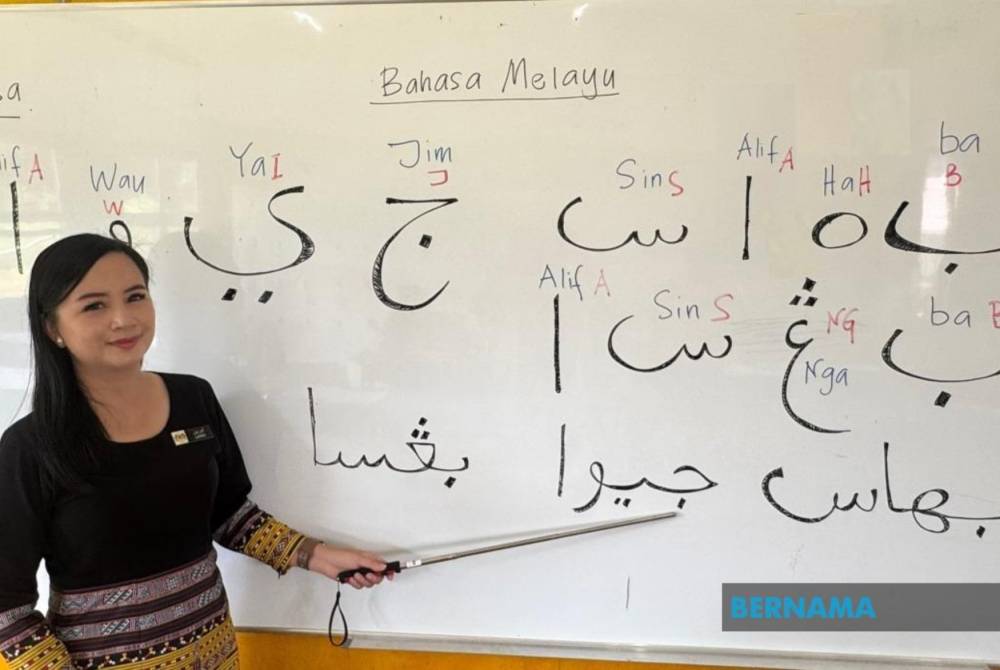 Bahasa Melayu
Wau W Ya I Jim J Sin S Alif A Ha H ba B
ب ه ا س ج ي و ا
Alif A Sin S NG Nga ba B
ب ڠ س ا
بهاس جيوا بڠسا
BERNAMA